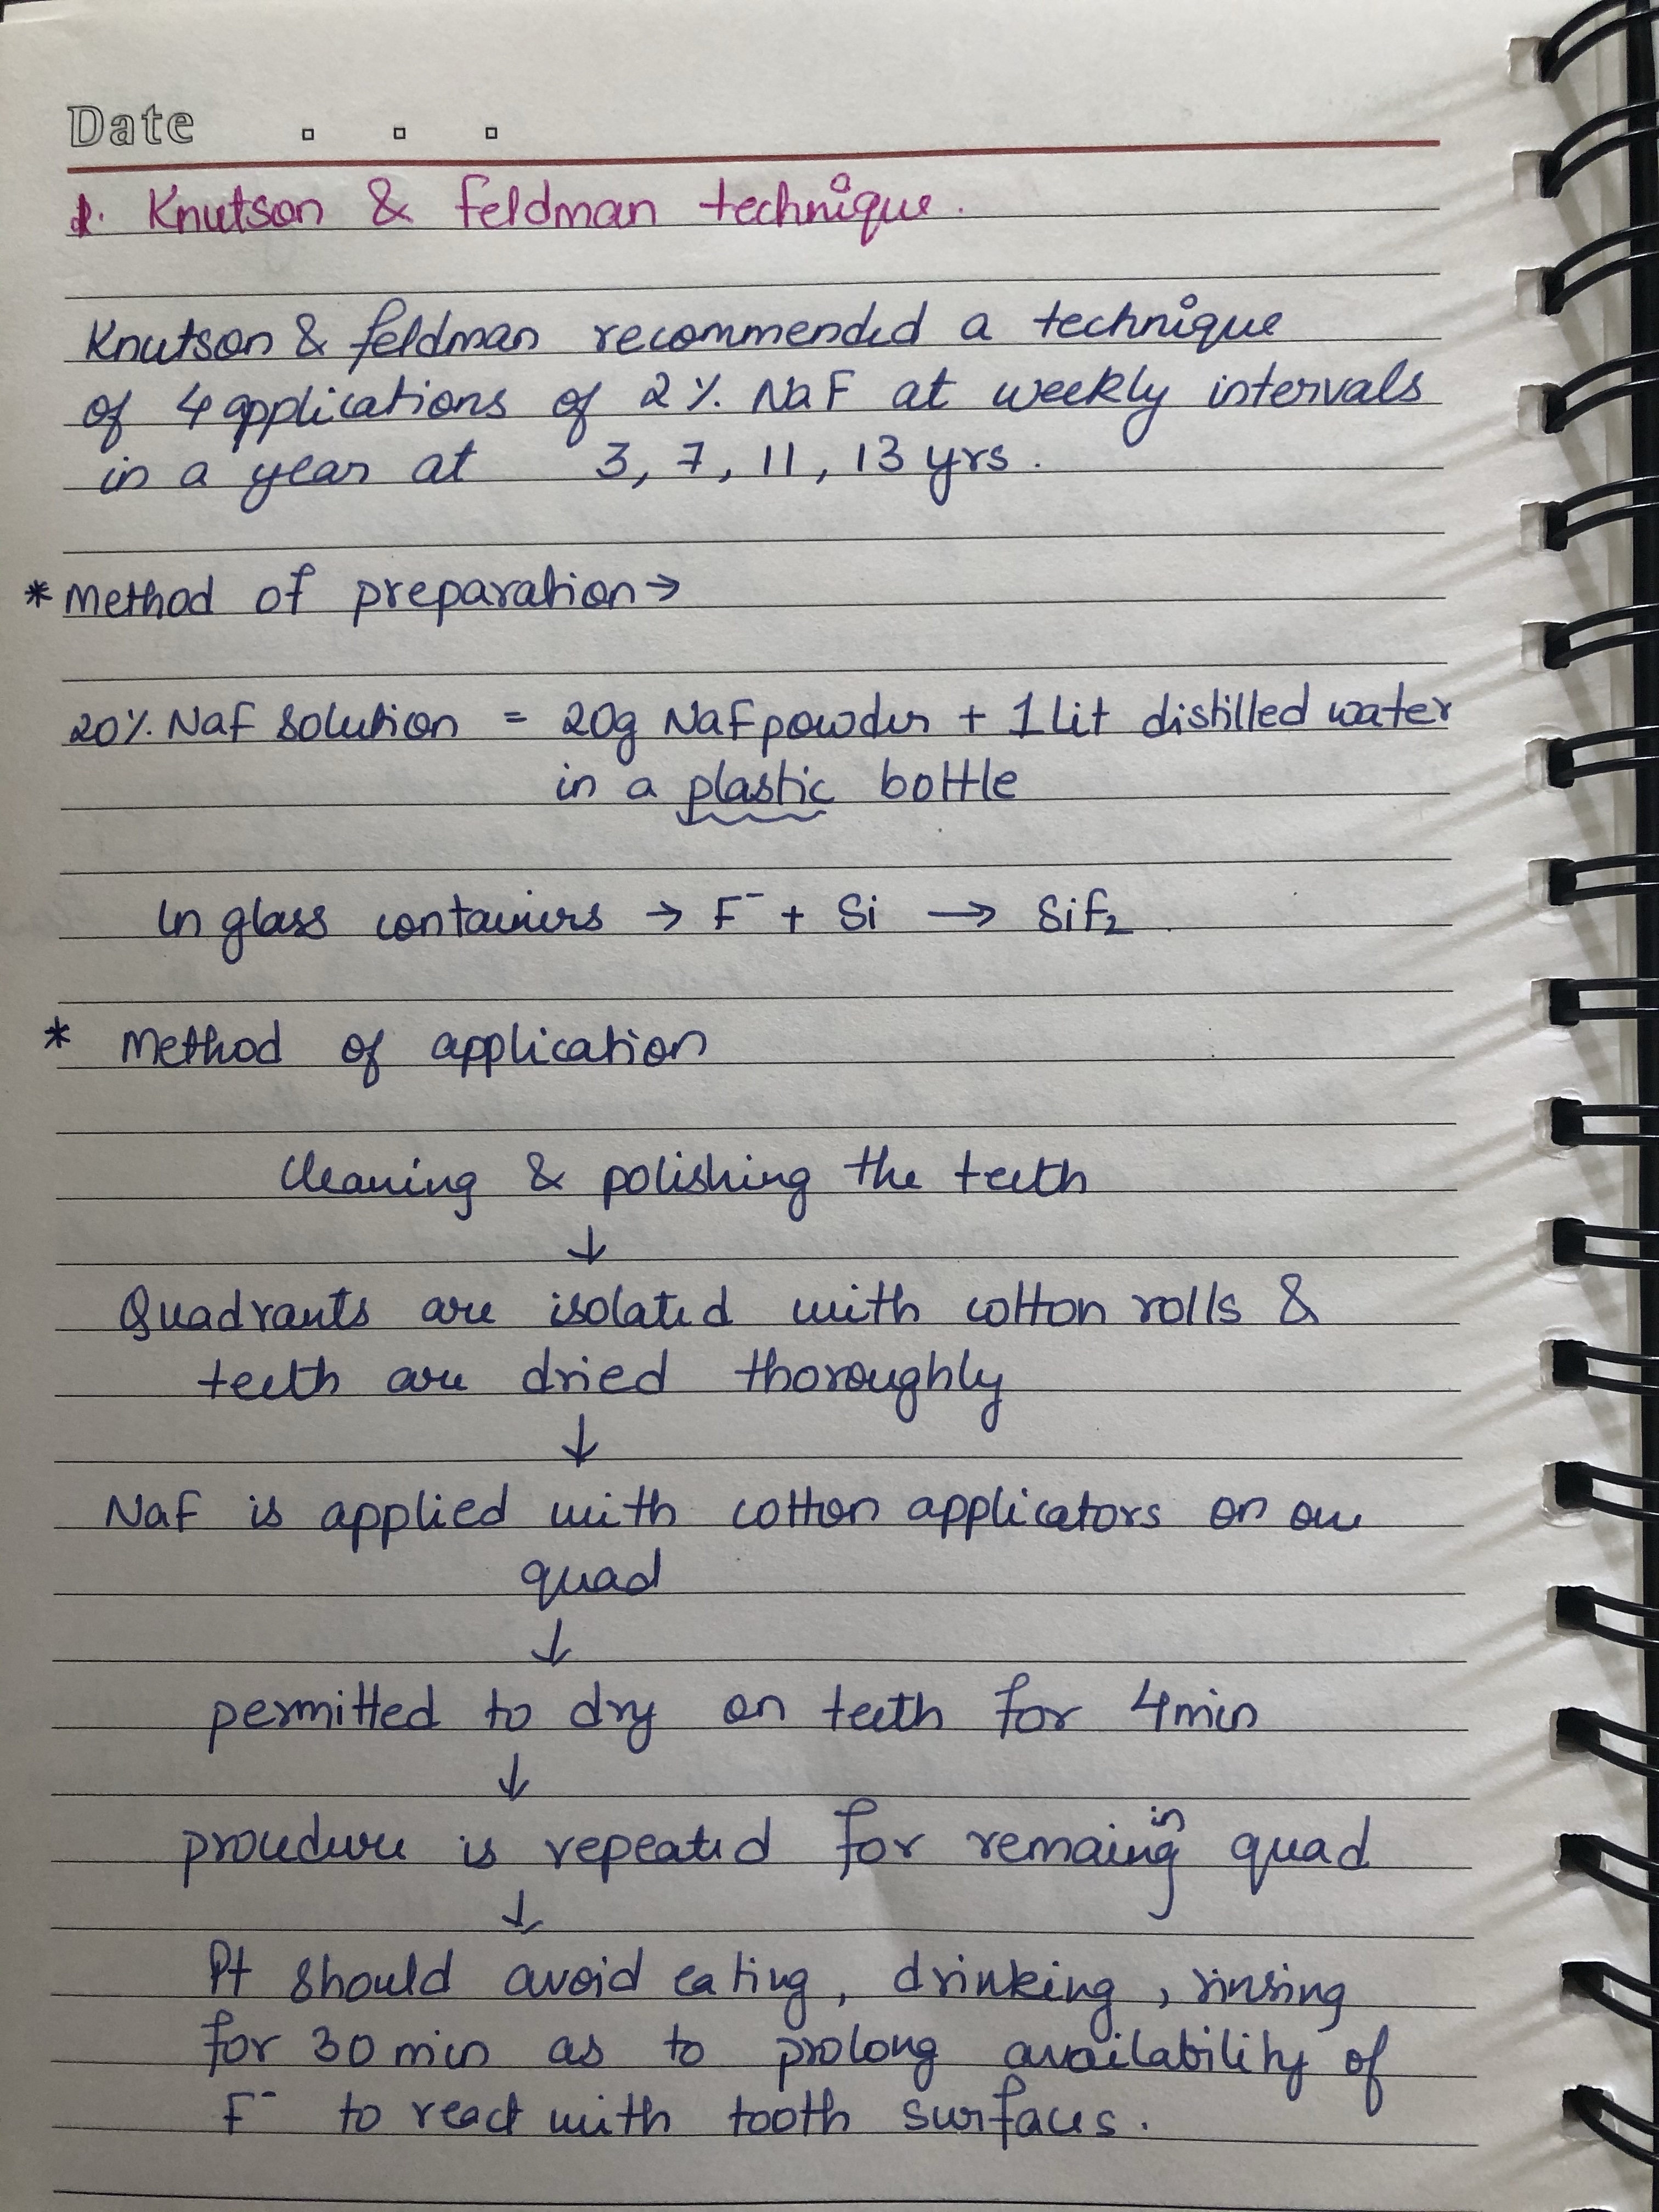 Date . . .
1. Knutson & feldman technique.
Knutson & feldman recommended a technique
of 4 applications of 2% NaF at weekly intervals
in a year at 3, 7, 11, 13 yrs.
* Method of preparation →
20% NaF solution = 20g NaF powder + 1 Lit distilled water
in a plastic bottle
In glass containers → F⁻ + Si → SiF₂
* Method of application
Cleaning & polishing the teeth
↓
Quadrants are isolated with cotton rolls &
teeth are dried thoroughly
↓
NaF is applied with cotton applicators on one
quad
↓
permitted to dry on teeth for 4 min
↓
procedure is repeated for remaining quad
↓
Pt should avoid eating, drinking, rinsing
for 30 min as to prolong availability of
F⁻ to react with tooth surfaces.